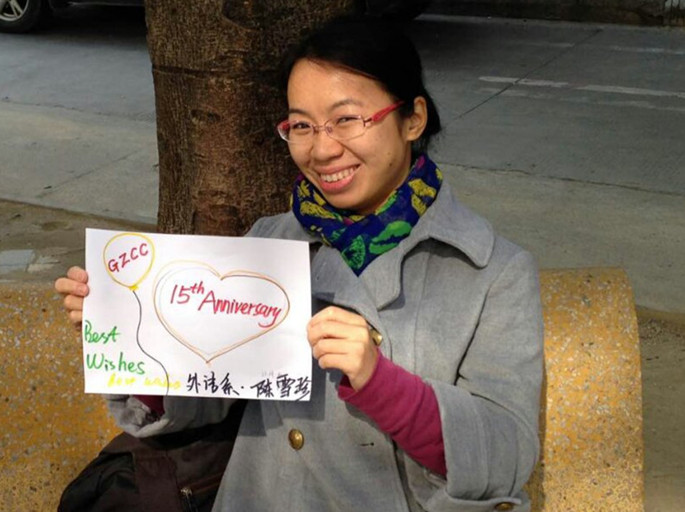 GZCC
15th Anniversary
Best
Wishes
外语系·陈雪珍